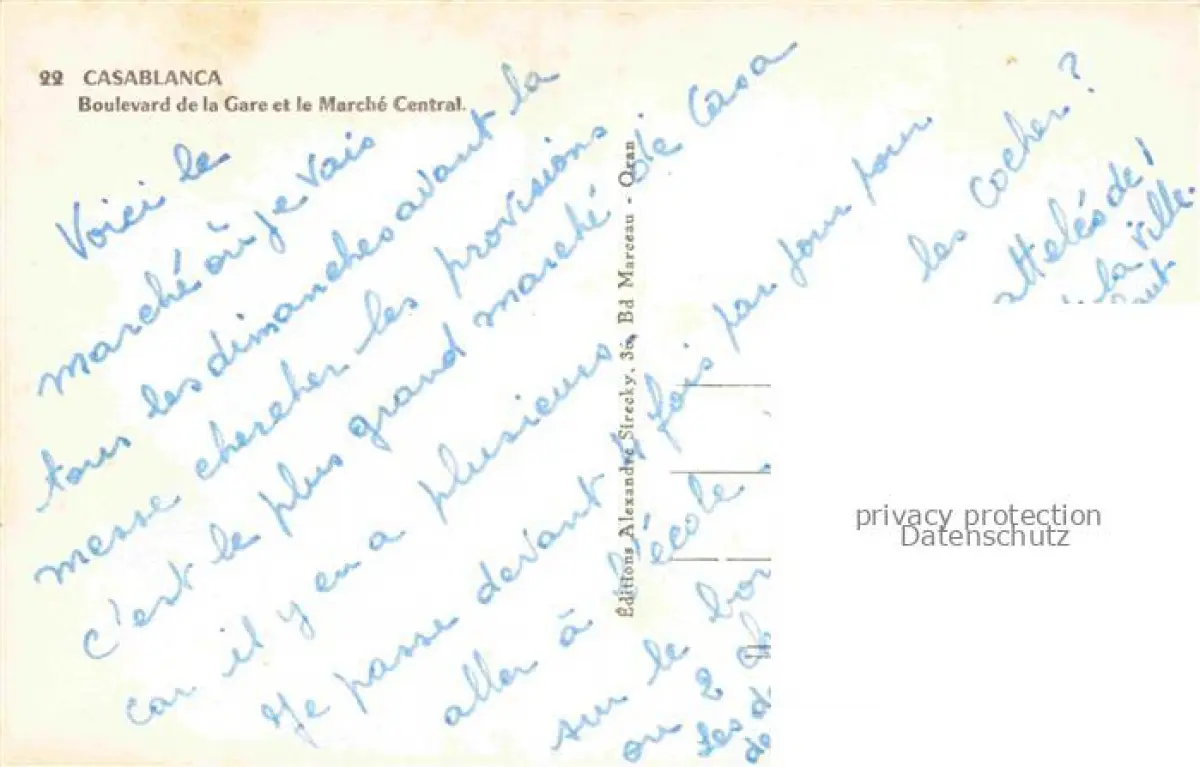 22 CASABLANCA
Boulevard de la Gare et le Marché Central.
Voici le
marché où je vais
tous les dimanches avant la
messe chercher les provisions
c'est le plus grand marché de Casa
car il y en a plusieurs.
Je passe devant 4 fois par jour pour
aller à l'école.
sur le
ou 2
les d
de
les cocher?
attelés de
la ville.
Éditions Alexandre Sirecky, 36, Bd Marceau - Oran
privacy protection
Datenschutz